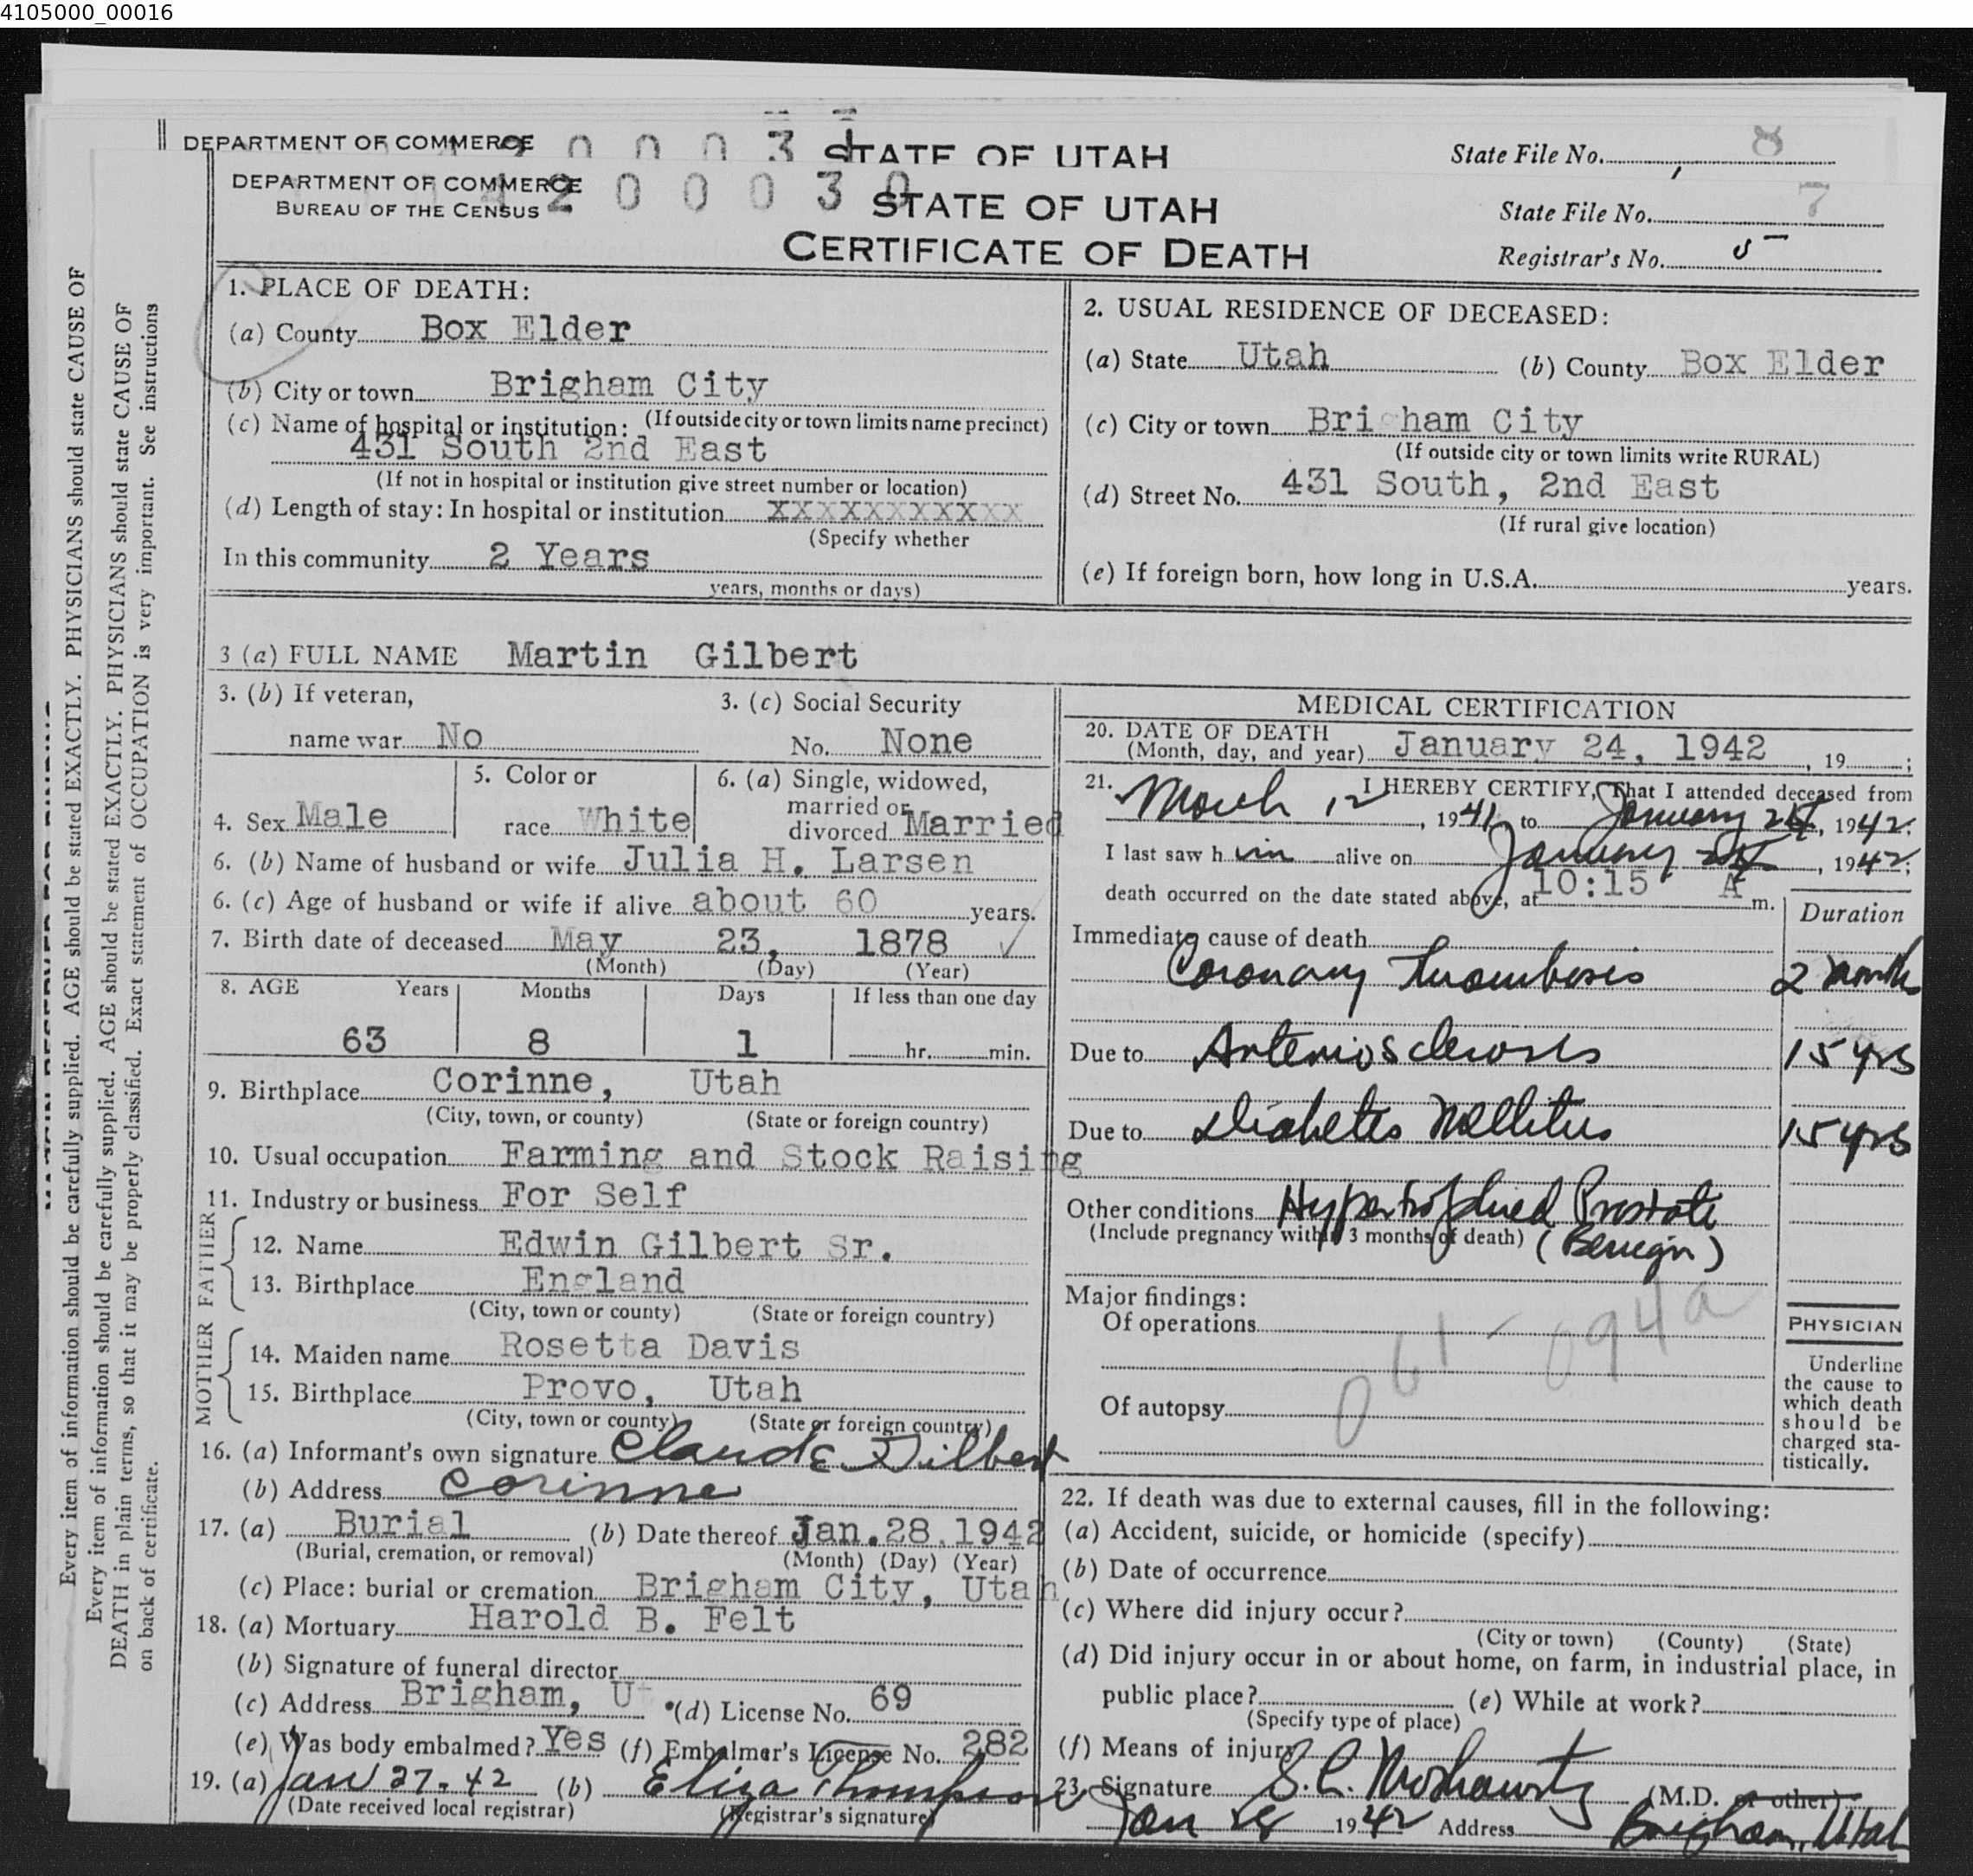 4105000_00016
DEPARTMENT OF COMMERCE
STATE OF UTAH
State File No. 8
DEPARTMENT OF COMMERCE
BUREAU OF THE CENSUS
4200030
STATE OF UTAH
CERTIFICATE OF DEATH
State File No. 7
Registrar's No. 5
Every item of information should be carefully supplied. AGE should be stated EXACTLY. PHYSICIANS should state CAUSE OF
Every item of information should be carefully supplied. AGE should be stated EXACTLY. PHYSICIANS should state CAUSE OF
DEATH in plain terms, so that it may be properly classified. Exact statement of OCCUPATION is very important. See instructions
on back of certificate.
1. PLACE OF DEATH:
(a) County Box Elder
(b) City or town Brigham City
(c) Name of hospital or institution: (If outside city or town limits name precinct)
431 South 2nd East
(If not in hospital or institution give street number or location)
(d) Length of stay: In hospital or institution XXXXXXXXXXX
(Specify whether
In this community 2 Years
years, months or days)
2. USUAL RESIDENCE OF DECEASED:
(a) State Utah (b) County Box Elder
(c) City or town Bri ham City
(If outside city or town limits write RURAL)
(d) Street No. 431 South, 2nd East
(If rural give location)
(e) If foreign born, how long in U.S.A. years.
3 (a) FULL NAME Martin Gilbert
3. (b) If veteran,
name war No
3. (c) Social Security
No. None
4. Sex Male
5. Color or
race White
6. (a) Single, widowed,
married or
divorced Married
6. (b) Name of husband or wife Julia H. Larsen
6. (c) Age of husband or wife if alive about 60 years.
7. Birth date of deceased May 23, 1878
(Month) (Day) (Year)
8. AGE Years Months Days If less than one day
63 8 1 hr. min.
9. Birthplace Corinne, Utah
(City, town, or county) (State or foreign country)
10. Usual occupation Farming and Stock Raising
11. Industry or business For Self
FATHER
12. Name Edwin Gilbert Sr.
13. Birthplace England
(City, town or county) (State or foreign country)
MOTHER
14. Maiden name Rosetta Davis
15. Birthplace Provo, Utah
(City, town or county) (State or foreign country)
16. (a) Informant's own signature Claude Gilbert
(b) Address Corinne
17. (a) Burial (b) Date thereof Jan.28.1942
(Burial, cremation, or removal) (Month) (Day) (Year)
(c) Place: burial or cremation Brigham City, Utah
18. (a) Mortuary Harold B. Felt
(b) Signature of funeral director
(c) Address Brigham, Ut. (d) License No. 69
(e) Was body embalmed? Yes (f) Embalmer's License No. 282
19. (a) Jan 27-42 (b) Eliza Thompson
(Date received local registrar) (Registrar's signature)
MEDICAL CERTIFICATION
20. DATE OF DEATH
(Month, day, and year) January 24, 1942, 19 ;
21. I HEREBY CERTIFY, That I attended deceased from
March 12, 1941, to January 24, 1942;
I last saw h im alive on January 24, 1942;
death occurred on the date stated above, at 10:15 A m.
Duration
Immediate cause of death
Coronary Thrombosis 2 months
Due to Arteriosclerosis 15 yrs
Due to Diabetes Mellitus 15 yrs
Other conditions Hypertrophied Prostate
(Include pregnancy within 3 months of death) (Benign)
Major findings:
Of operations
061-094a
Of autopsy
PHYSICIAN
Underline
the cause to
which death
should be
charged sta-
tistically.
22. If death was due to external causes, fill in the following:
(a) Accident, suicide, or homicide (specify)
(b) Date of occurrence
(c) Where did injury occur?
(City or town) (County) (State)
(d) Did injury occur in or about home, on farm, in industrial place, in
public place? (e) While at work?
(Specify type of place)
(f) Means of injury
23. Signature (M.D. or other)
Jan 28 1942 Address Brigham, Utah